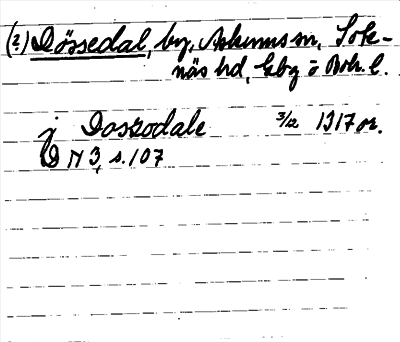 (2) Dössedal, by, Askums sn, Sote-
näs hd, Gbg o Boh. l.
j Dossodale 3/12 1317 or.
D N 3, s. 107